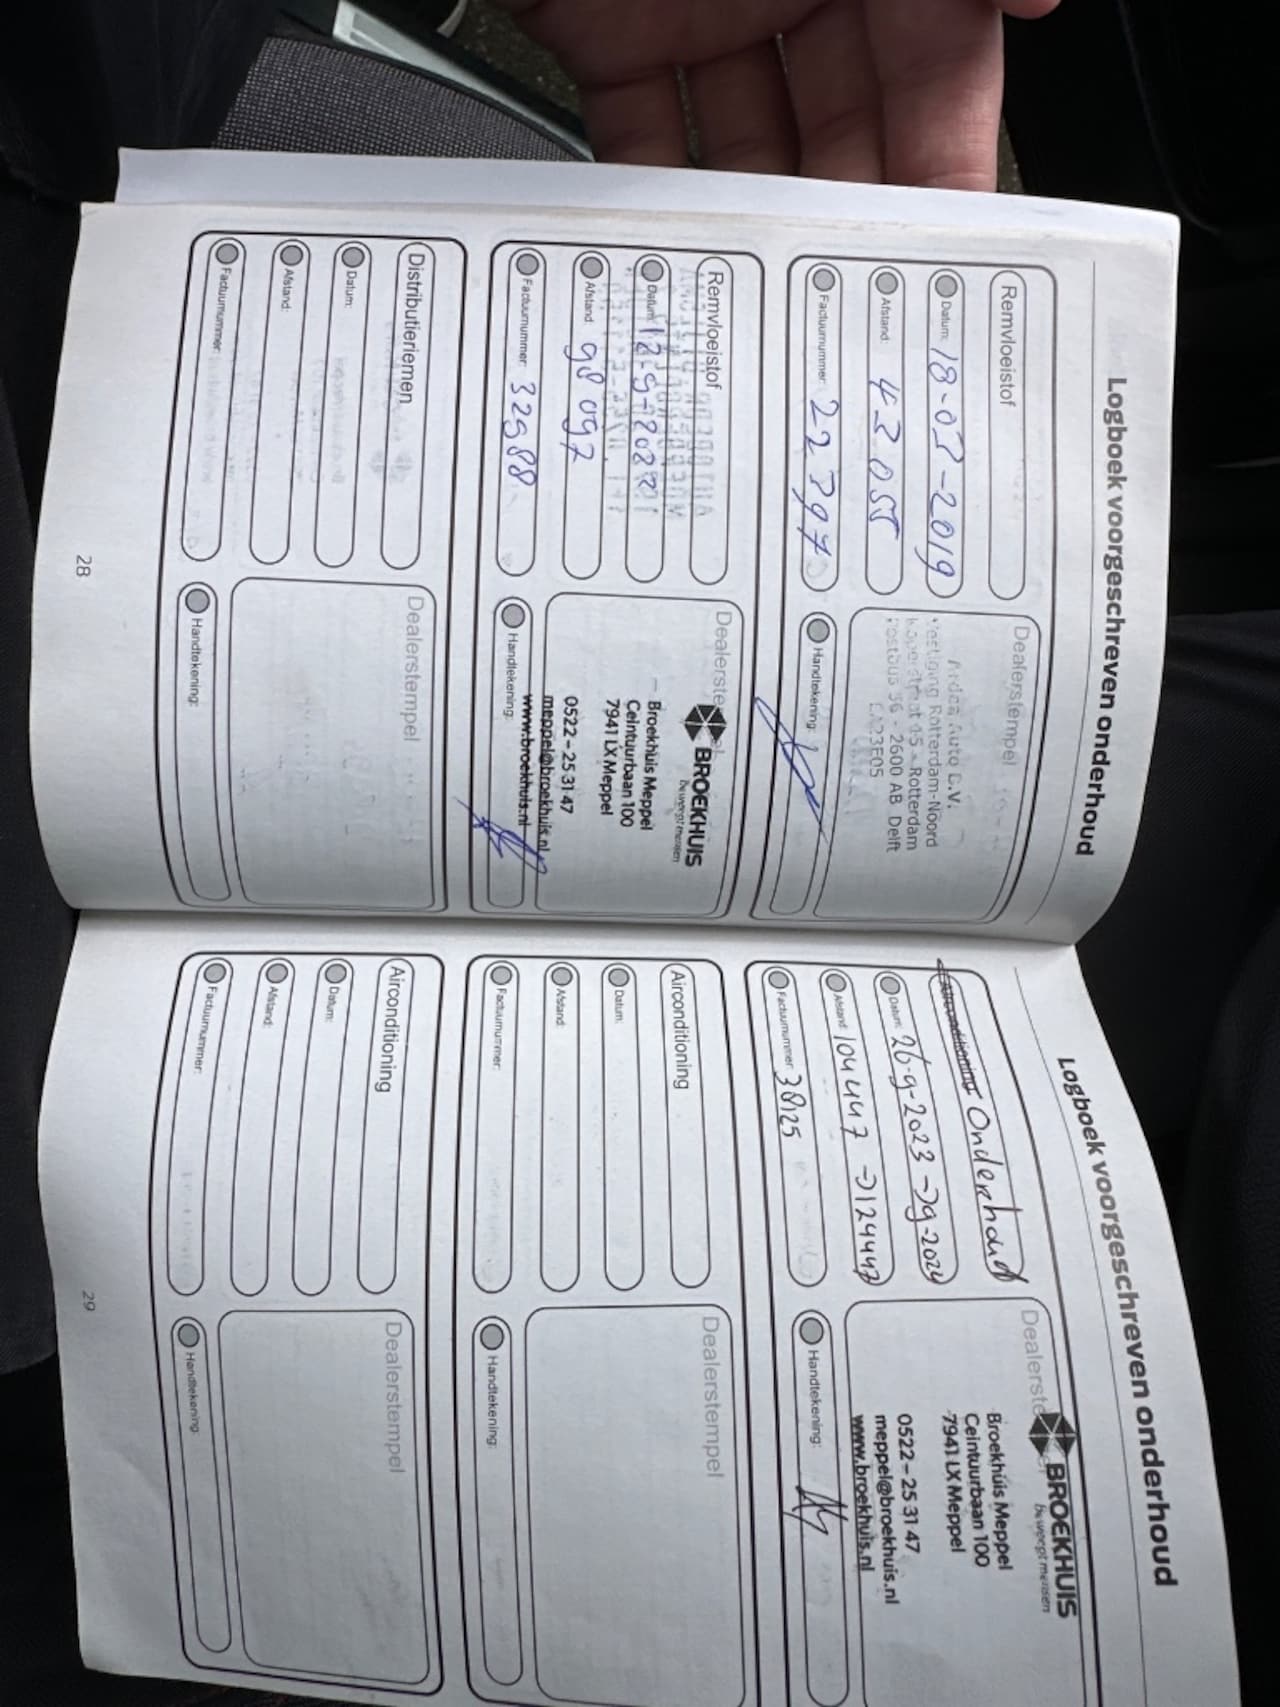 Logboek voorgeschreven onderhoud
Remvloeistof
Datum: 18-07-2019
Afstand: 42 055
Factuurnummer: 22397
Dealerstempel
Vestiging Rotterdam-Noord
- Rotterdam
Postbus 56 - 2600 AB Delft
Handtekening:
Remvloeistof
Datum: 12-9-2022
Afstand: 98 097
Factuurnummer: 32988
BROEKHUIS
beweegt mensen
Broekhuis Meppel
Ceintuurbaan 100
7941 LX Meppel
0522 – 25 31 47
meppel@broekhuis.nl
www.broekhuis.nl
Handtekening:
Distributieriemen
Datum:
Afstand:
Factuurnummer:
Dealerstempel
Handtekening:
28
Logboek voorgeschreven onderhoud
Airconditioning Onderhoud
Datum: 26-9-2023 → 9-2024
Afstand: 104447 → 124447
Factuurnummer: 38125
BROEKHUIS
beweegt mensen
Broekhuis Meppel
Ceintuurbaan 100
7941 LX Meppel
0522 – 25 31 47
meppel@broekhuis.nl
www.broekhuis.nl
Handtekening:
Airconditioning
Datum:
Afstand:
Factuurnummer:
Dealerstempel
Handtekening:
Airconditioning
Datum:
Afstand:
Factuurnummer:
Dealerstempel
Handtekening:
29